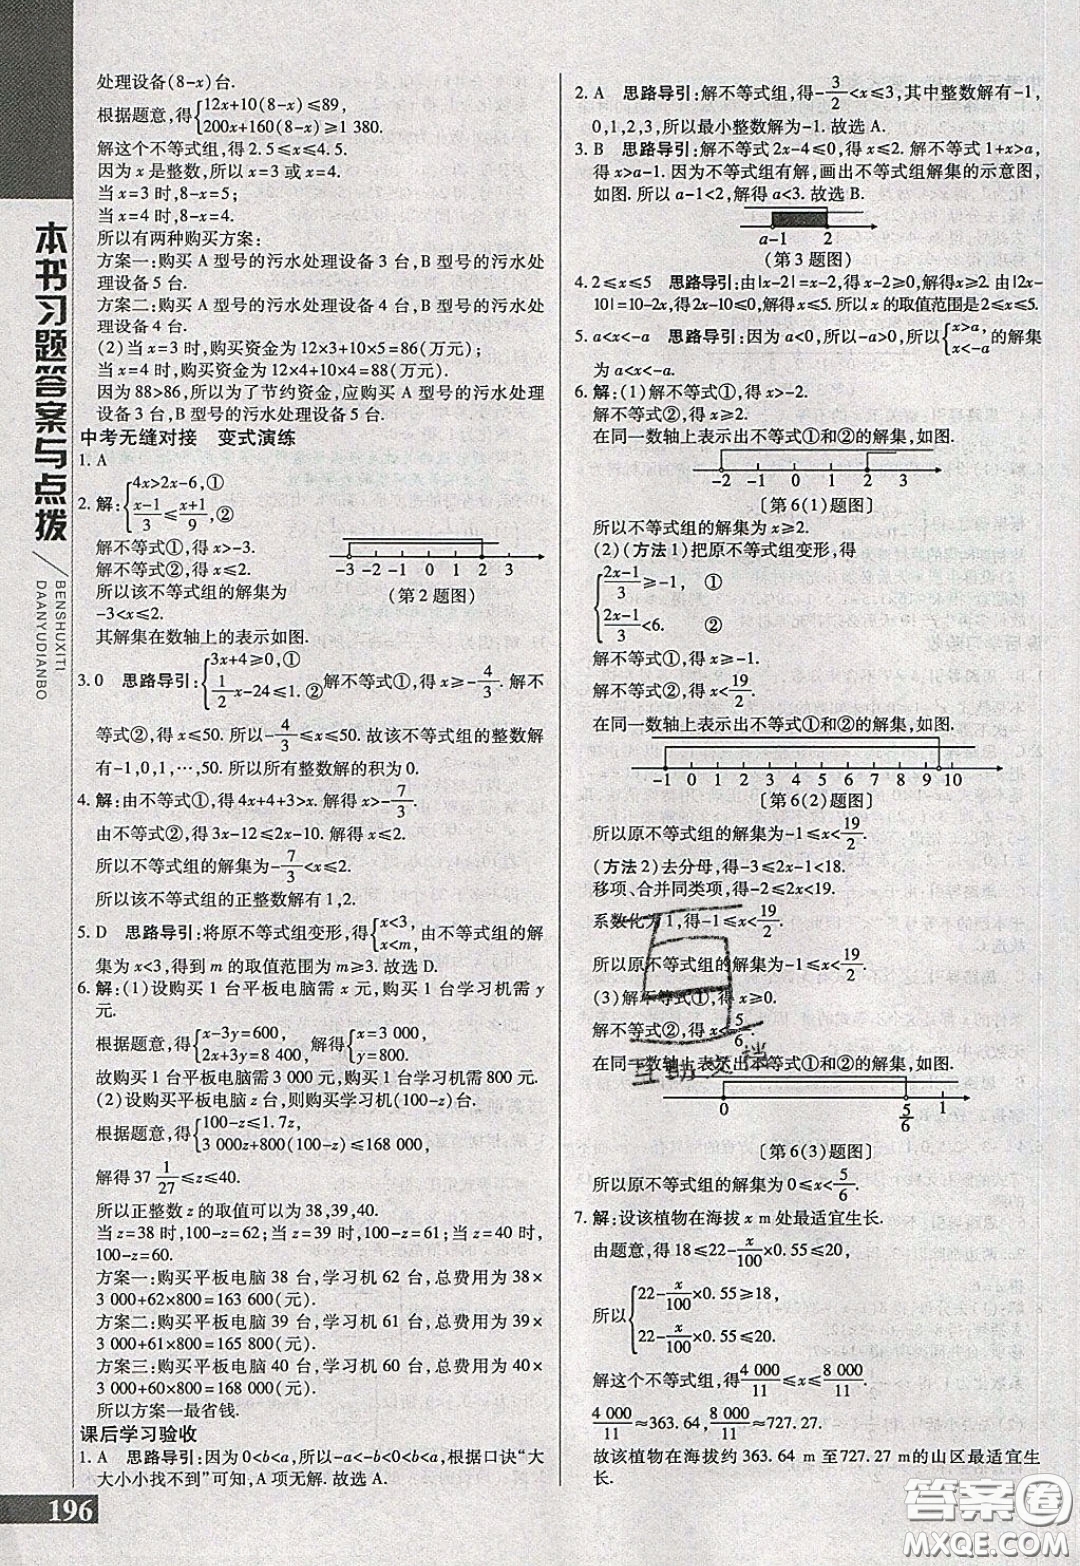 本书习题答案与点拨
BENSHUXITI
DAANYUDIANBO
处理设备(8-x)台.
根据题意,得{12x+10(8-x)≤89,
200x+160(8-x)≥1 380.
解这个不等式组,得 2.5≤x≤4.5.
因为 x 是整数,所以 x=3 或 x=4.
当 x=3 时,8-x=5.
当 x=4 时,8-x=4.
所以有两种购买方案:
方案一:购买 A 型号的污水处理设备 3 台,B 型号的污水处
理设备 5 台.
方案二:购买 A 型号的污水处理设备 4 台,B 型号的污水处
理设备 4 台.
(2)当 x=3 时,购买资金为 12×3+10×5=86(万元);
当 x=4 时,购买资金为 12×4+10×4=88(万元).
因为 88>86,所以为了节约资金,应购买 A 型号的污水处理
设备 3 台,B 型号的污水处理设备 5 台.
中考无缝对接 变式演练
1. A
2. 解:{4x>2x-6,①
(x-1)/3≤(x+1)/9,②
解不等式①,得 x>-3.
解不等式②,得 x≤2.
-3 -2 -1 0 1 2 3
所以该不等式组的解集为
(第 2 题图)
-3<x≤2.
其解集在数轴上的表示如图.
3. 0 思路导引:{3x+4≥0,①
1/2x-24≤1.②解不等式①,得 x≥-4/3. 解不
等式②,得 x≤50. 所以-4/3≤x≤50. 故该不等式组的整数解
有-1,0,1,…,50. 所以所有整数解的积为 0.
4. 解:由不等式①,得 4x+4+3>x. 解得 x>-7/3.
由不等式②,得 3x-12≤2x-10. 解得 x≤2.
所以不等式组的解集为-7/3<x≤2.
所以该不等式组的正整数解有 1,2.
5. D 思路导引:将原不等式组变形,得{x<3,
x<m,由不等式组的解
集为 x<3,得到 m 的取值范围为 m≥3. 故选 D.
6. 解:(1)设购买 1 台平板电脑需 x 元,购买 1 台学习机需 y
元.
根据题意,得{x-3y=600,
2x+3y=8 400,解得{x=3 000,
y=800.
故购买 1 台平板电脑需 3 000 元,购买 1 台学习机需 800 元.
(2)设购买平板电脑 z 台,则购买学习机(100-z)台.
根据题意,得{100-z≤1.7z,
3 000z+800(100-z)≤168 000,
解得 37 1/27≤z≤40.
所以正整数 z 的取值可以为 38,39,40.
当 z=38 时,100-z=62;当 z=39 时,100-z=61;当 z=40 时,
100-z=60.
方案一:购买平板电脑 38 台,学习机 62 台,总费用为 38×
3 000+62×800=163 600(元).
方案二:购买平板电脑 39 台,学习机 61 台,总费用为 39×
3 000+61×800=165 800(元).
方案三:购买平板电脑 40 台,学习机 60 台,总费用为 40×
3 000+60×800=168 000(元).
所以方案一最省钱.
课后学习验收
1. A 思路导引:因为 0<b<a,所以-a<-b<0<b<a,根据口诀“大
大小小找不到”可知,A 项无解. 故选 A.
2. A 思路导引:解不等式组,得-3/2<x≤3,其中整数解有-1,
0,1,2,3,所以最小整数解为-1. 故选 A.
3. B 思路导引:解不等式 2x-4≤0,得 x≤2. 解不等式 1+x>a,
得 x>a-1. 因为不等式组有解,画出不等式组解集的示意图,
如图. 所以 a-1<2,解得 a<3. 故选 B.
a-1 2
(第 3 题图)
4. 2≤x≤5 思路导引:由|x-2|=x-2,得 x-2≥0,x≥2. 由|2x-
10|=10-2x,得 2x-10≤0,解得 x≤5. 所以 x 的取值范围是 2≤x≤5.
5. a<x<-a 思路导引:因为 a<0,所以-a>0,所以{x>a,
x<-a的解集
为 a<x<-a.
6. 解:(1)解不等式①,得 x>-2.
解不等式②,得 x≥2.
在同一数轴上表示出不等式①和②的解集,如图.
-2 -1 0 1 2 3
〔第 6(1)题图〕
所以不等式组的解集为 x≥2.
(2)(方法 1)把原不等式组变形,得
{(2x-1)/3≥-1, ①
(2x-1)/3<6. ②
解不等式①,得 x≥-1.
解不等式②,得 x<19/2.
在同一数轴上表示出不等式①和②的解集,如图.
-1 0 1 2 3 4 5 6 7 8 9 10
〔第 6(2)题图〕
所以原不等式组的解集为-1≤x<19/2.
(方法 2)去分母,得-3≤2x-1<18.
移项、合并同类项,得-2≤2x<19.
系数化为 1,得-1≤x<19/2.
所以原不等式组的解集为-1≤x<19/2.
(3)解不等式①,得 x≥0.
解不等式②,得 x<5/6.
在同一数轴上表示出不等式①和②的解集,如图.
0 5/6 1
〔第 6(3)题图〕
所以原不等式组的解集为 0≤x<5/6.
7. 解:设该植物在海拔 x m 处最适宜生长.
由题意,得 18≤22-x/100×0.55≤20,
所以{22-x/100×0.55≥18,
22-x/100×0.55≤20.
解这个不等式组,得 4 000/11≤x≤8 000/11.
4 000/11≈363.64, 8 000/11≈727.27.
故该植物在海拔约 363.64 m 至 727.27 m 的山区最适宜生
长.
196
答案圈
MXQE.COM